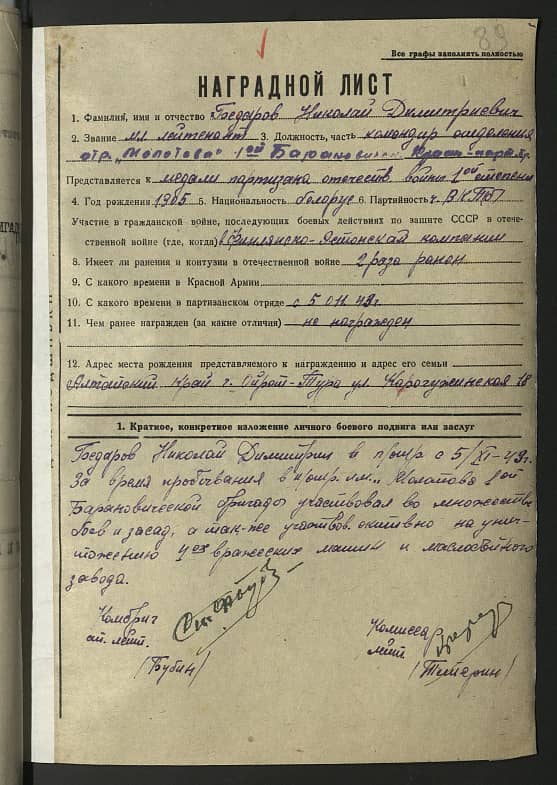 89
Все графы заполнять полностью
НАГРАДНОЙ ЛИСТ
1. Фамилия, имя и отчество Гоедаров Николай Димитриевич
2. Звание мл лейтенант 3. Должность, часть командир отделения
отр. „Молотова" 1ой Баранович.
Представляется к медали партизана отечеств. войны 1ой степени
4. Год рождения 1905 5. Национальность белорус 6. Партийность ч. ВКП(б)
Участие в гражданской войне, последующих боевых действиях по защите СССР в отече-
ственной войне (где, когда) в Финлянско-Эстонской компании
8. Имеет ли ранения и контузии в отечественной войне 2 раза ранен
9. С какого времени в Красной Армии
10. С какого времени в партизанском отряде с 5 011 43 г
11. Чем ранее награжден (за какие отличия) не награжден
12. Адрес места рождения представляемого к награждению и адрес его семьи
Алтайский край г. Ойрот-Тура ул. 18
1. Краткое, конкретное изложение личного боевого подвига или заслуг
Гоедаров Николай Димитри в п/отр с 5/XI-43г.
За время пробывания в п/отр. им. Молотова 1ой
Барановической бригады участвовал во множестве
боев и засад, а так-же участвов. активно на унич-
тожению 4ех вражеских машин и маслобойного
завода.
Комбриг
ст. лейт.
(Бубин)
Комиссар
лейт.
(Тетерин)